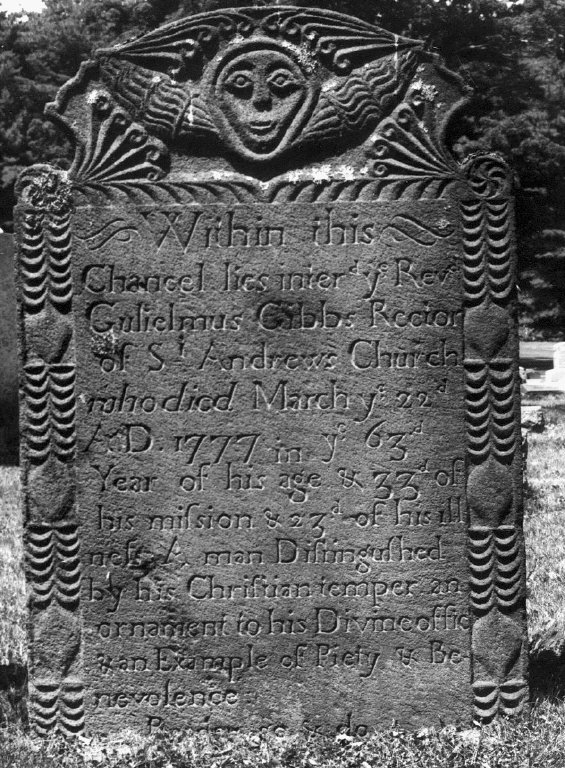 Within this
Chancel lies interd yͤ Revd
Gulielmus Gibbs Rector
of Sᵗ Andrews Church
who died March yͤ 22ᵈ
A:D: 1777 in yͤ 63ᵈ
Year of his age & 33ᵈ of
his miſsion & 23ᵈ of his ill
neſs A man Diſtinguſhed
by his Chriſtian temper an
ornament to his Divine offic
& an Example of Piety & Be-
nevolence
Reader go & do